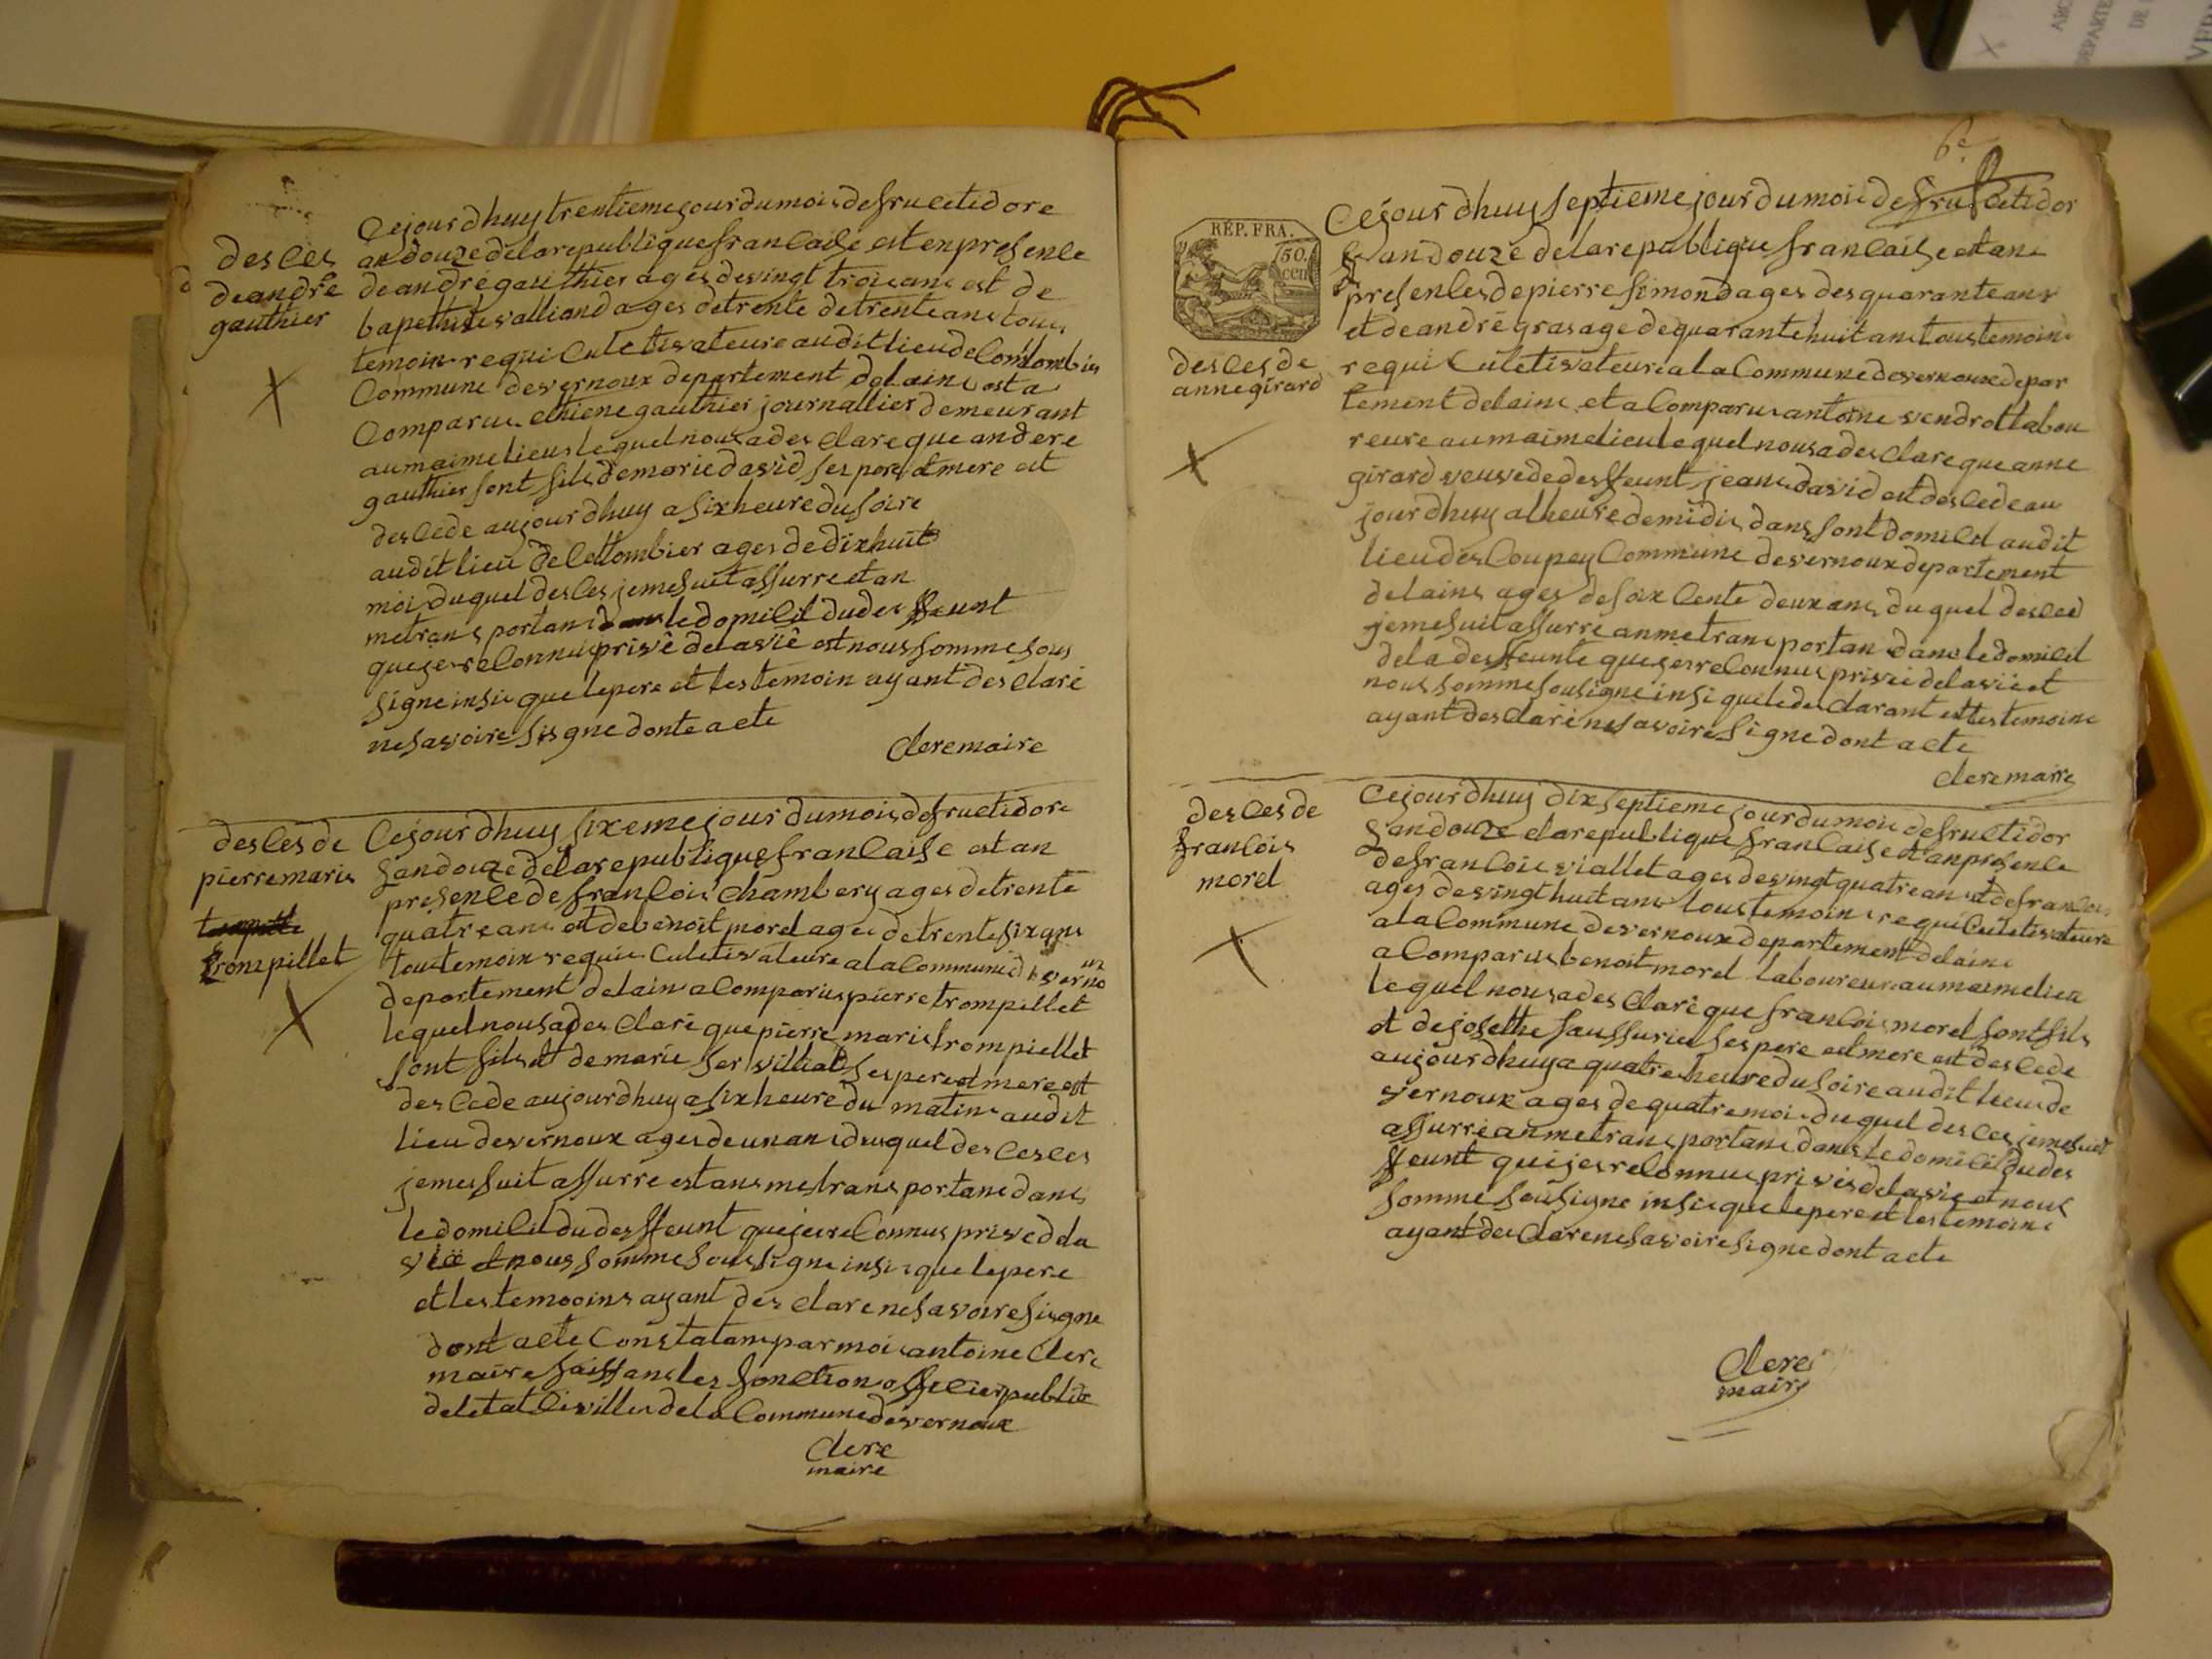 desces
de andre
gauthier
Cejourdhuy trentieme jour du mois de fructidore
an douze de la republique francaise est en presence
de andré gauthier ages de vingt trois ans est de
bapethiste valliand ages de trente de trente ans tous
temoin requi culetivateure audit lieu de Colombier
Commune de vernoux departement delain est a
Comparus ethiene gauthier journallier demeurant
au maime lieus lequel nous a des clare que andere
gauthier sont fils de marie david ses pere et mere est
descede aujourdhuy a six heure du soire
audit lieu de Collombier ages de dix huit
moi duquel desces je me suit assurre et an
metrans portant dans le domicil du des ffeunt
que jes reconnu privé de la vié est nous somme sous
signe insi que le pere et les temoin ayant des claré
ne savoire sisgne donte acte
Clere maire
desces de
pierre marie
trompillet
Cejourdhuy sixeme jour du mois de fructidore
landouze de la republique francaise est an
presence de francois Chambery ages de trente
quatre ans et de benoit morel ages de trente six ans
tous temoin requis culetivateure a la Commune de vernoux
departement delain a Comparus pierre trompillet
lequel nous a des claré que pierre marie trompiellet
sont fils et de marie servilliat ses pere et mere est
descede aujourdhuy a six heure du matin audit
lieu de vernoux ages de un ans duquel desces
je me suit assurré est ans mes trans portans dans
le domicil du des ffeunt que jes reconnus prived da
vié et nous somme sous signe insi que le pere
et les temooins ayant des clare ne savoire sisgne
dont acte Constatans par moi antoine Clere
maire faissans les fonction officier publix
de letat civilles de la Commune de vernoux
Clere
maire
6e
RÉP. FRA.
50.
cen
desces de
anne girard
Cejourdhuy septieme jour du moi de fructidor
landouze de la republique francaise est ans
presences de pierre simond ages des quarante ans
et de andré gras age de quarante huit ans tous temoins
requi culetivateure a la Commune de vernoux depar
tement delaine et a Comparus antoine vendrot labou
reure au maime lieu lequel nous a des clare que anne
girard veuve de des ffeunt jeans david est descede au
jourdhuy a lheure de midis dans sont domicil audit
lieu des Coupey Commune de vernoux departement
delains ages de soixcente deux ans duquel desced
je me suit assurré an me trans portan dans le domicil
de la des ffeunte que jes reconnus privée de la vié et
nous somme sousigne insi que le des clarant et les temoins
ayant des claré ne savoire signe dont acte
Clere maire
desces de
francois
morel
Cejourdhuy dix septieme jour du mois de fructidor
landouze de la republique francaise et an presence
de francois viallet ages de vingt quatre ans et de francois
ages de vingt huit ans tous temoins requi culetivateure
a la Commune de vernoux departement delains
a Comparus benoit morel laboureur au maime lieu
lequel nous a des claré que francois morel sont fils
et de josethe saussurie ses pere et mere est descede
aujourdhuy a quatre heure du soire audit lieu de
vernoux ages de quatre moi duquel desces je me suit
assurré an me trans portans dans le domicil du des
ffeunt que jes reconnus privés de la vie et nous
somme sousigne insi que le pere et les temoins
ayant des clare ne savoire signe dont acte
Clere
maire